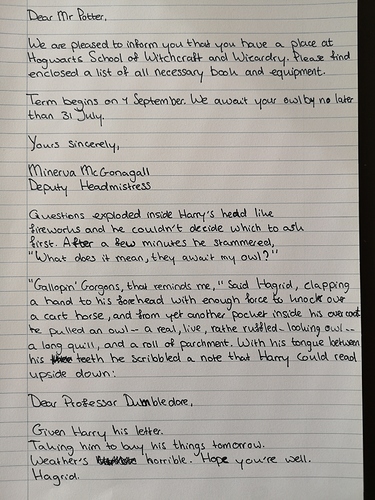 Dear Mr Potter,
We are pleased to inform you that you have a place at
Hogwarts School of Witchcraft and Wizardry. Please find
enclosed a list of all necessary book and equipment.
Term begins on 1 September. We await your owl by no later
than 31 July.
Yours sincerely,
Minerva McGonagall
Deputy Headmistress
Questions exploded inside Harry's head like
fireworks and he couldn't decide which to ask
first. After a few minutes he stammered,
"What does it mean, they await my owl?"
"Gallopin' Gorgons, that reminds me," Said Hagrid, clapping
a hand to his forehead with enough force to knock over
a cart horse, and from yet another pocket inside his overcoat
he pulled an owl - a real, live, rathe ruffled-looking owl --
a long quill, and a roll of parchment. With his tongue between
his teeth he scribbled a note that Harry could read
upside down:
Dear Professor Dumbledore,
Given Harry his letter.
Taking him to buy his things tomorrow.
Weather's horrible. Hope you're well.
Hagrid.